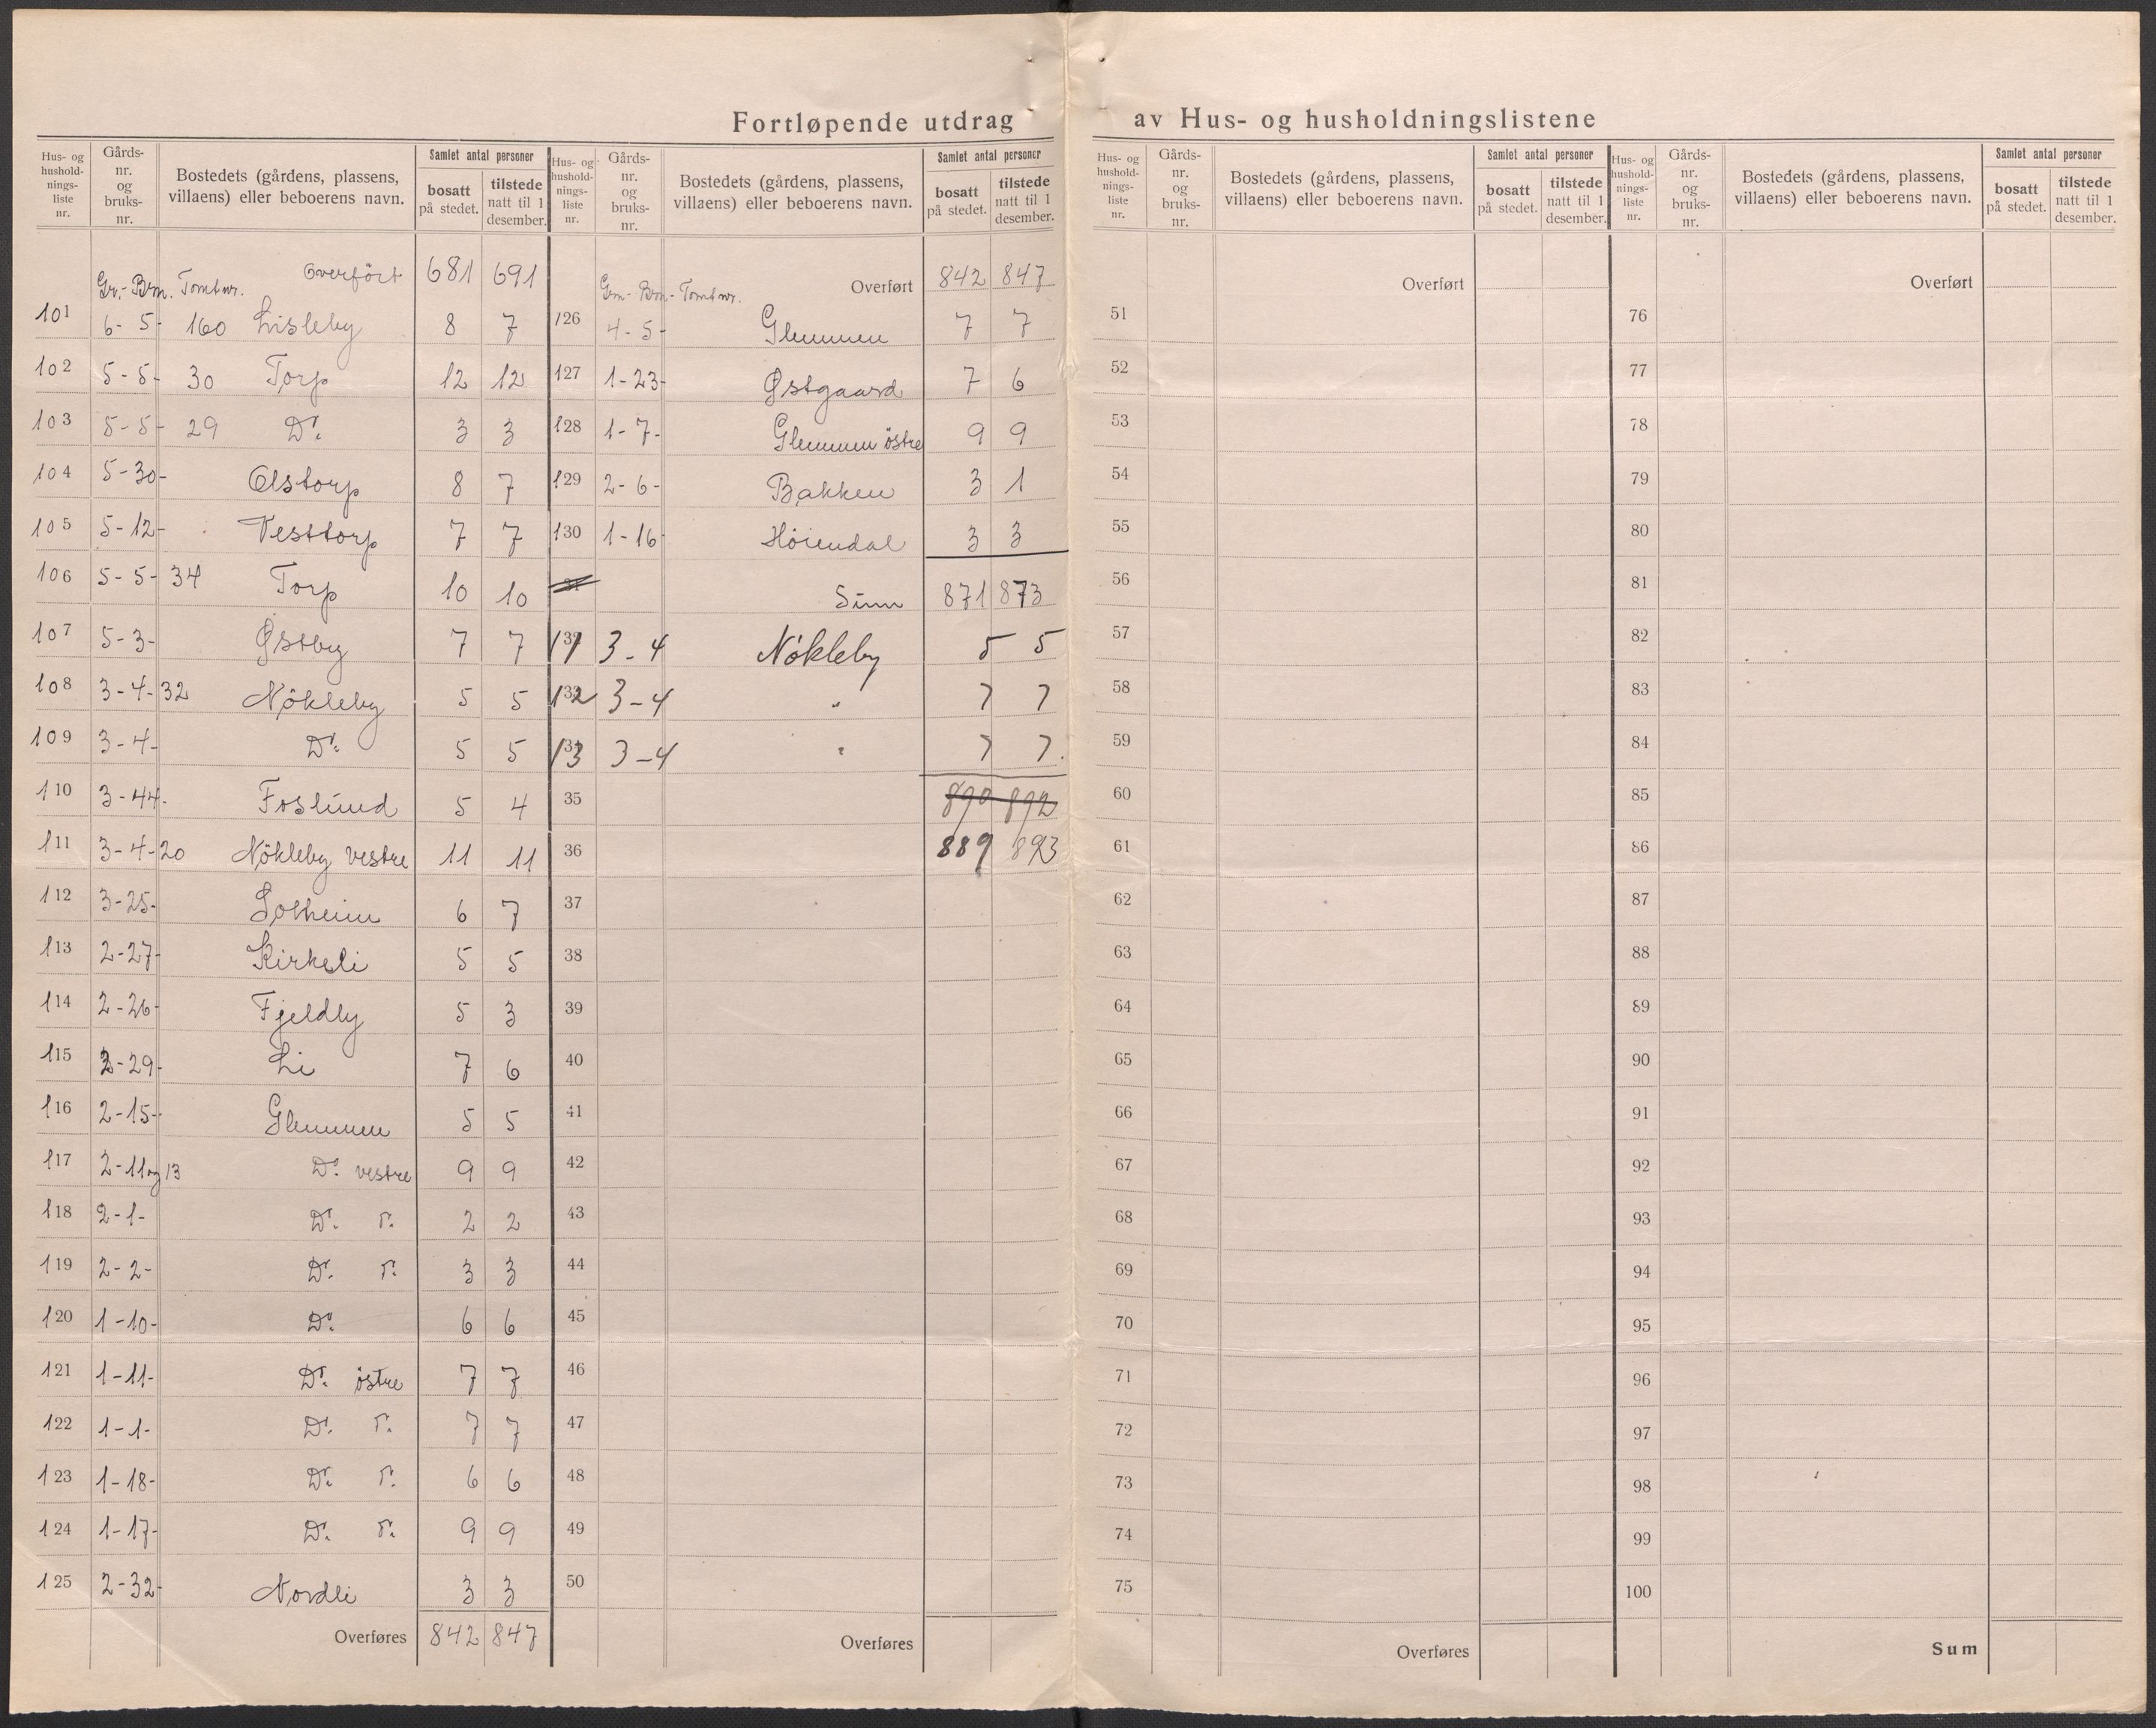 Fortløpende utdrag av Hus- og husholdningslistene
Hus- og hushold-nings-liste nr. Gårds-nr. og bruks-nr. Bostedets (gårdens, plassens, villaens) eller beboerens navn. Samlet antal personer bosatt på stedet. tilstede natt til 1 desember.
Gr.- Brn. Tomt nr. Overført 681 691
101 6- 5- 160 Lisleby 8 7
102 5-5- 30 Torp 12 12
103 5-5- 29 Do. 3 3
104 5-30- Olstorp 8 7
105 5-12- Vesttorp 7 7
106 5-5- 34 Torp 10 10
107 5-3- Østby 7 7
108 3-4- 32 Nökleby 5 5
109 3-4- Do. 5 5
110 3-44- Foslund 5 4
111 3-4-20 Nökleby vestre 11 11
112 3-25- Solheim 6 7
113 2-27- Kirkeli 5 5
114 2-26- Fjeldly 5 3
115 2-29- Li 7 6
116 2-15- Glemmen 5 5
117 2-11og13 Do. vestre 9 9
118 2-1- Do. Do. 2 2
119 2-2- Do. Do. 3 3
120 1-10- Do. 6 6
121 1-11- Do. östre 7 7
122 1-1- Do. Do. 7 7
123 1-18- Do. Do. 6 6
124 1-17- Do. Do. 9 9
125 2-32- Nordli 3 3
Overføres 842 847
Hus- og hushold-nings-liste nr. Gårds-nr. og bruks-nr. Bostedets (gårdens, plassens, villaens) eller beboerens navn. Samlet antal personer bosatt på stedet. tilstede natt til 1 desember.
Grn- Brn- Tomt nr. Overført 842 847
126 4-5- Glemmen 7 7
127 1-23- Østgaard 7 6
128 1-7- Glemmen östre 9 9
129 2-6- Bakken 3 1
130 1-16- Höiendal 3 3
31 Sum 871 873
131 3-4 Nökleby 5 5
132 3-4 " 7 7
133 3-4 " 7 7.
35 890 892
36 889 893
37
38
39
40
41
42
43
44
45
46
47
48
49
50
Overføres
Hus- og hushold-nings-liste nr. Gårds-nr. og bruks-nr. Bostedets (gårdens, plassens, villaens) eller beboerens navn. Samlet antal personer bosatt på stedet. tilstede natt til 1 desember.
Overført
51
52
53
54
55
56
57
58
59
60
61
62
63
64
65
66
67
68
69
70
71
72
73
74
75
Overføres
Hus- og hushold-nings-liste nr. Gårds-nr. og bruks-nr. Bostedets (gårdens, plassens, villaens) eller beboerens navn. Samlet antal personer bosatt på stedet. tilstede natt til 1 desember.
Overført
76
77
78
79
80
81
82
83
84
85
86
87
88
89
90
91
92
93
94
95
96
97
98
99
100
Sum